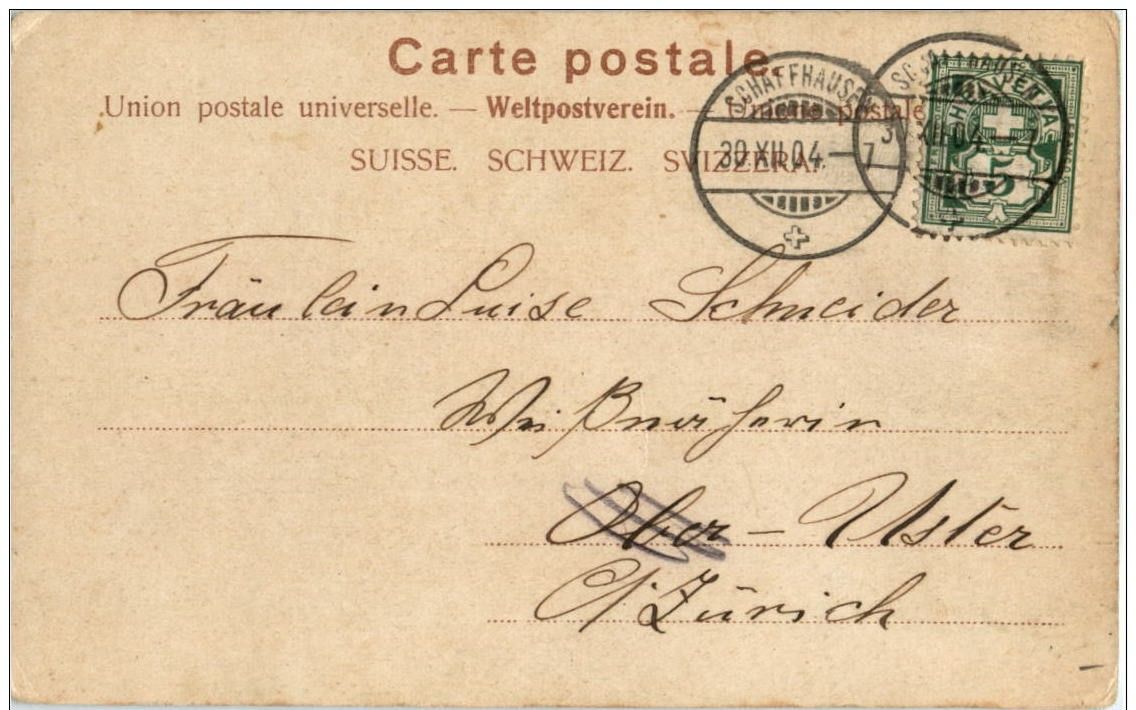 Carte postale.
Union postale universelle. — Weltpostverein. — Unione postale
SUISSE. SCHWEIZ. SVIZZERA.
SCHAFFHAUSEN
30.XII.04.—7
XII.04.—7
HELVETIA
5
Fräulein Luise Schneider
Weißnäherin
Ober-Uster
Ct. Zürich